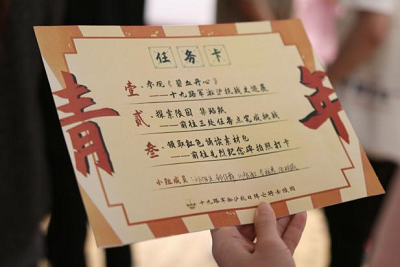 任务卡
青年
壹·参观《碧血丹心》
——十九路军淞沪抗战史迹展
贰·探索陵园 集路线
——前往三处任务点完成挑战
叁·领取红色诵读素材包
——前往先烈纪念碑拍照打卡
小组成员:
十九路军淞沪抗日阵亡将士陵园